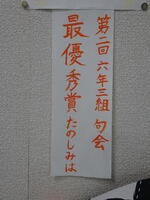 第二回 六年三組 句会
最優秀賞 たのしみは